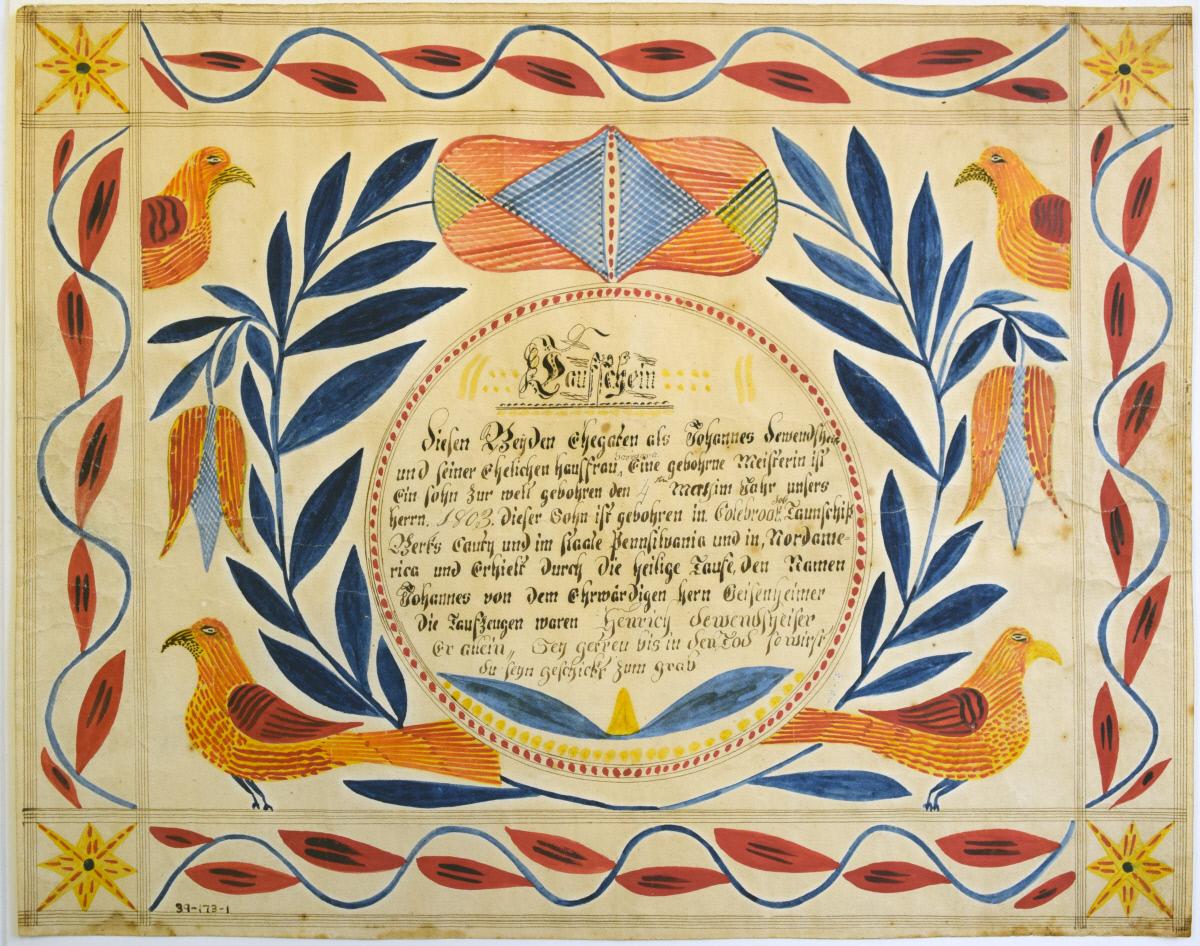 Taufschein
Diesen Beyden Ehegaten als Johannes Dewendshei
barbara
und seiner Ehelichen hausfrau, Eine gebohrne Meisterin ist
Ein sohn zur welt gebohren den 4ten Mertz im Jahr unsers
herrn. 1803. Dieser Sohn ist gebohren in Colebrookdol Taunschip
Berks Caunty und im staate Pennsilvania und in, Nordame-
rica und Erhielt Durch Die heilige Taufe, den Namen
Johannes von dem Ehrwärdigen hern Geisenheimer
Die Taufzeugen waren Henrich Dewendsheiser
Er allein,, Sey getreu bis in den Tod so wirst
du seyn geschickt zum grab
39-173-1